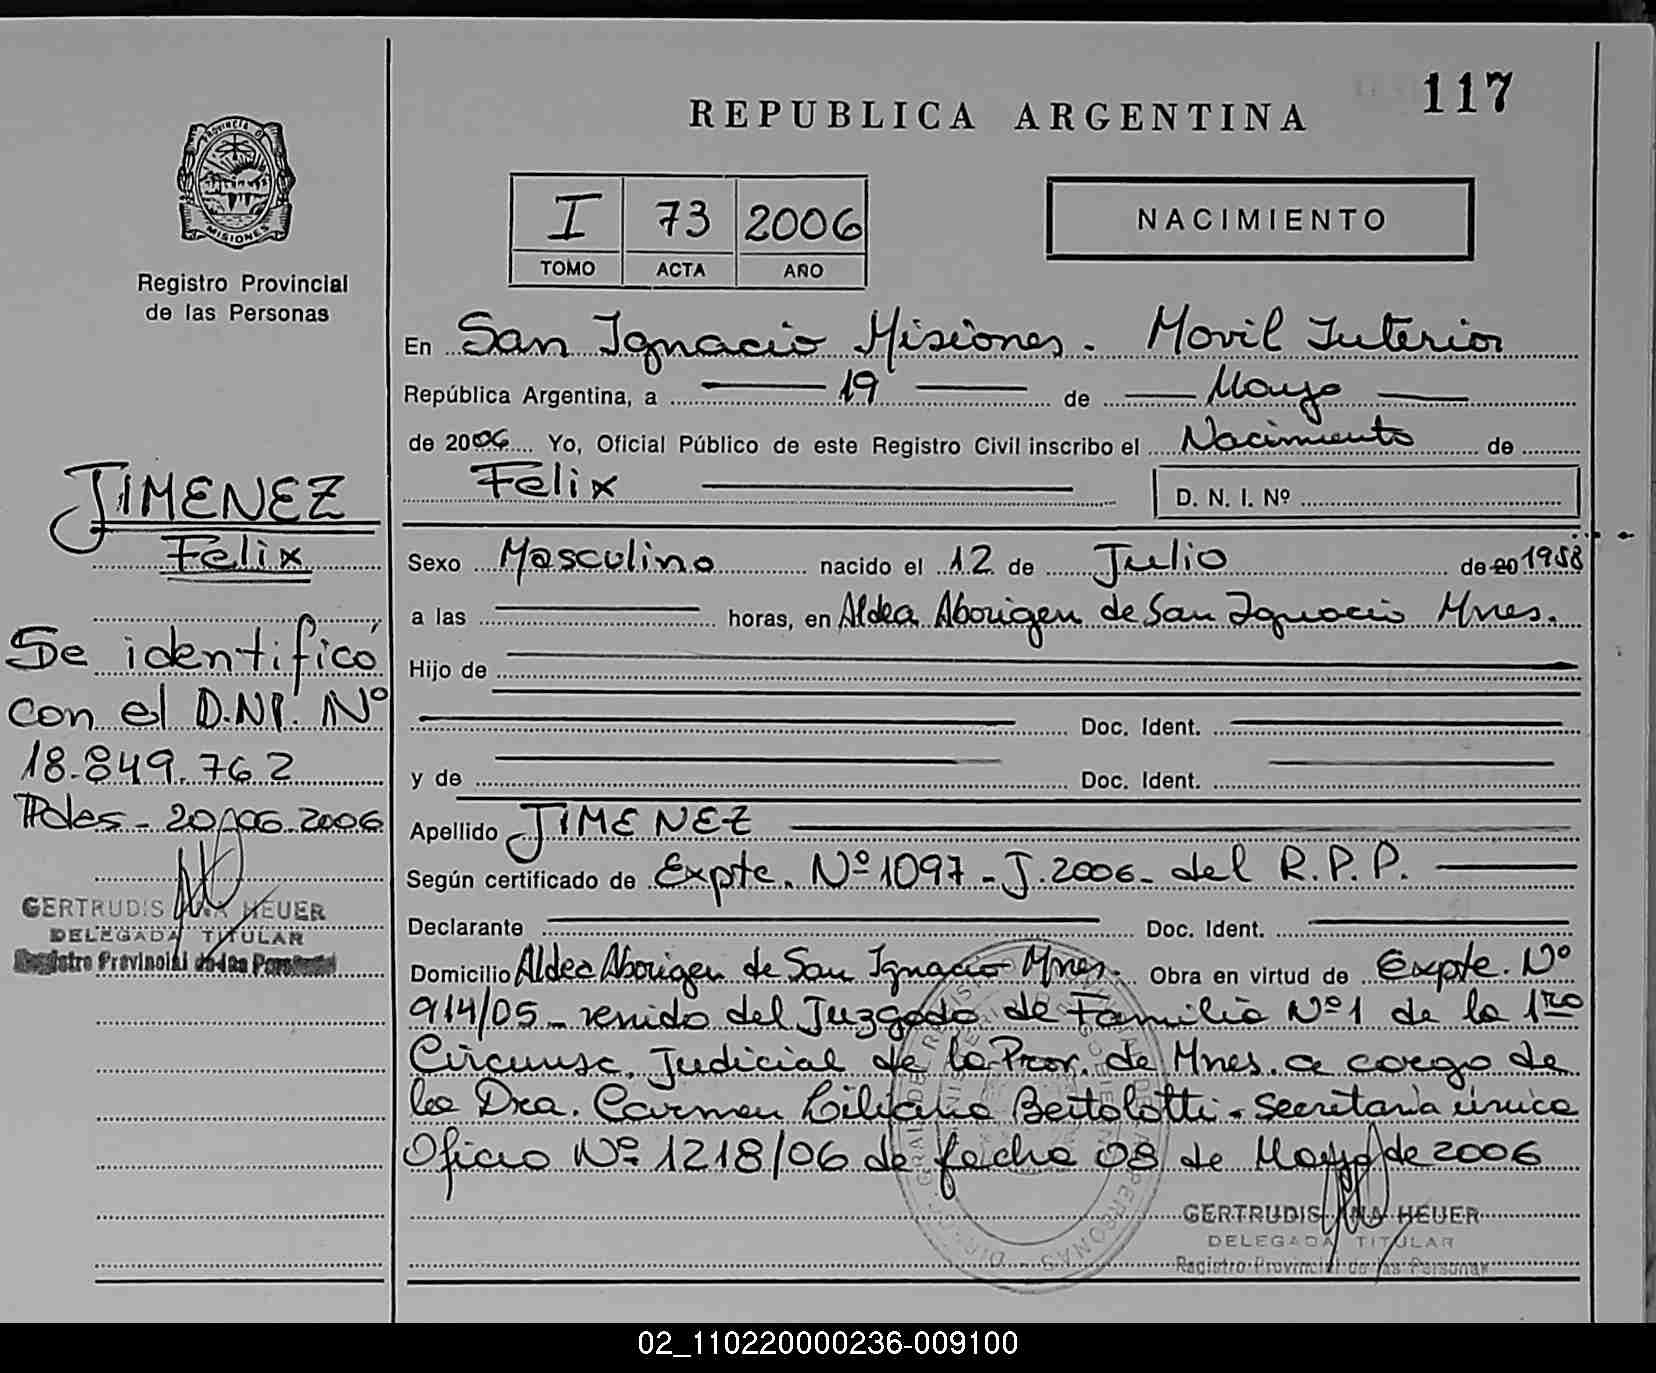 117
REPUBLICA ARGENTINA
Provincia de
MISIONES
Registro Provincial
de las Personas
I 73 2006
TOMO ACTA AÑO
NACIMIENTO
En San Ignacio Misiones. Movil Interior
República Argentina, a 19 de Mayo
de 2006 Yo, Oficial Público de este Registro Civil inscribo el Nacimiento de
Felix D. N. I. Nº
Sexo Masculino nacido el 12 de Julio de 20 1958
a las horas, en Aldea Aborigen de San Ignacio Mnes.
Hijo de
Doc. Ident.
y de Doc. Ident.
Apellido JIMENEZ
Según certificado de Expte. Nº 1097-J.2006- del R.P.P.
Declarante Doc. Ident.
Domicilio Aldea Aborigen de San Ignacio Mnes. Obra en virtud de Expte. Nº
914/05- venido del Juzgado de Familia Nº1 de la 1ra
Circunsc. Judicial de la Prov. de Mnes. a cargo de
la Dra. Carmen Liliana Bertolotti. Secretaría única
Oficio Nº 1218/06 de fecha 08 de Mayo de 2006
GERTRUDIS ANA HEUER
DELEGADA TITULAR
Registro Provincial de las Personas
JIMENEZ
Felix
Se identificó
con el D.N.I. Nº
18.849.762
Pdas- 20/06.2006
GERTRUDIS ANA HEUER
DELEGADA TITULAR
Registro Provincial de las Personas
02_110220000236-009100